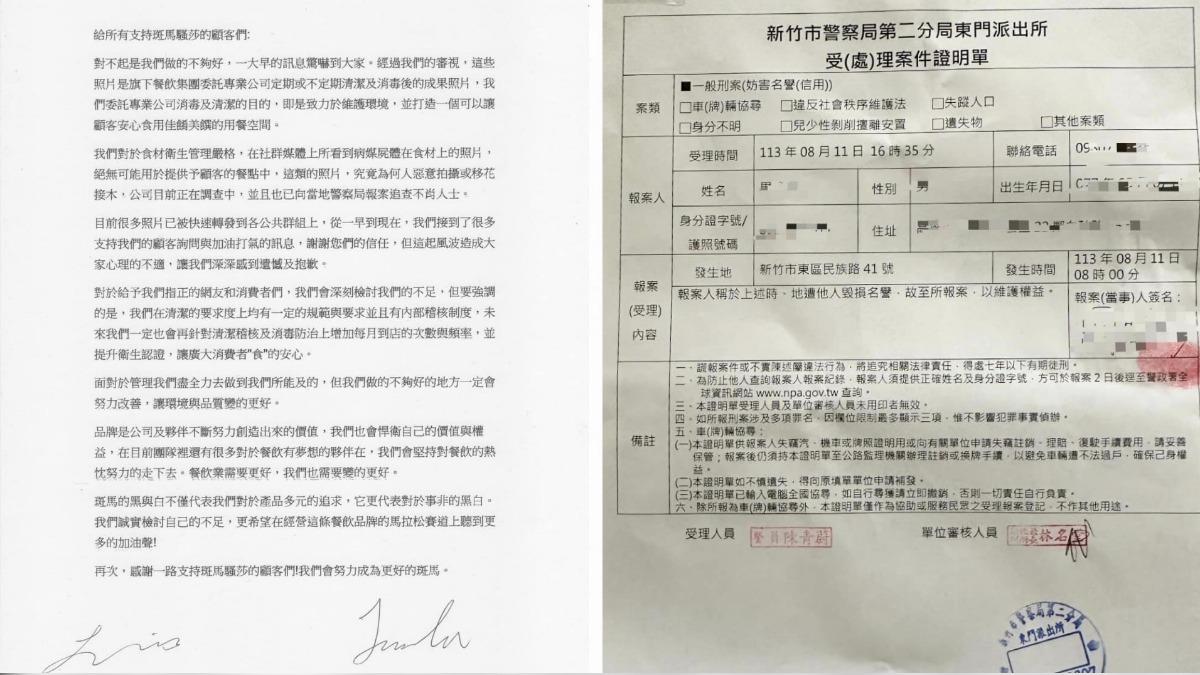 給所有支持斑馬騷莎的顧客們:
對不起是我們做的不夠好，一大早的訊息驚嚇到大家。經過我們的審視，這些
照片是旗下餐飲集團委託專業公司定期或不定期清潔及消毒後的成果照片，我
們委託專業公司消毒及清潔的目的，即是致力於維護環境，並打造一個可以讓
顧客安心食用佳餚美饌的用餐空間。
我們對於食材衛生管理嚴格，在社群媒體上所看到病媒屍體在食材上的照片，
絕無可能用於提供予顧客的餐點中，這類的照片，究竟為何人惡意拍攝或移花
接木，公司目前正在調查中，並且也已向當地警局報案追查不肖人士。
目前很多照片已被快速轉發到各公共群組上，從一早到現在，我們接到了很多
支持我們的顧客詢問與加油打氣的訊息，謝謝您們的信任，但這起風波造成大
家心理的不適，讓我們深深感到遺憾及抱歉。
對於給予我們指正的網友和消費者們，我們會深刻檢討我們的不足，但要強調
的是，我們在清潔的要求度上均有一定的規範與要求並且有內部稽核制度，未
來我們一定也會再針對清潔稽核及消毒防治上增加每月到店的次數與頻率，並
提升衛生認證，讓廣大消費者"食"的安心。
面對於管理我們盡全力去做到我們所能及的，但我們做的不夠好的地方一定會
努力改善，讓環境與品質變的更好。
品牌是公司及夥伴不斷努力創造出來的價值，我們也會悍衛自己的價值與權
益，在目前團隊裡還有很多對於餐飲有夢想的夥伴在，我們會堅持對餐飲的熱
忱努力的走下去。餐飲業需要更好，我們也需要變的更好。
斑馬的黑與白不僅代表我們對於產品多元的追求，它更代表對於事非的黑白。
我們誠實檢討自己的不足，更希望在經營這條餐飲品牌的馬拉松賽道上聽到更
多的加油聲!
再次，感謝一路支持斑馬騷莎的顧客們!我們會努力成為更好的斑馬。
新竹市警察局第二分局東門派出所
受(處)理案件證明單
案類
■一般刑案(妨害名譽(信用))
□車(牌)輛協尋 □違反社會秩序維護法 □失蹤人口
□身分不明 □兒少性剝削擅離安置 □遺失物 □其他案類
報案人
受理時間 113 年 08 月 11 日 16 時 35 分 聯絡電話
姓名 性別 男 出生年月日
身分證字號/
護照號碼
住址
報案
(受理)
內容
發生地 新竹市東區民族路 41 號 發生時間 113 年 08 月 11 日
08 時 00 分
報案人稱於上述時、地遭他人毀損名譽，故至所報案，以維護權益。
報案(當事)人簽名：
備註
一、謊報案件或不實陳述屬違法行為，將追究相關法律責任，得處七年以下有期徒刑。
二、為防止他人查詢報案人報案紀錄，報案人須提供正確姓名及身分證字號，方可於報案 2 日後逕至警政署全
球資訊網站 www.npa.gov.tw 查詢。
三、本證明單受理人員及單位審核人員未用印者無效。
四、如所報刑案涉及多項罪名，因欄位限制最多顯示三項，惟不影響犯罪事實偵辦。
五、車(牌)輛協尋：
(一)本證明單供報案人失竊汽、機車或牌照證明用或向有關單位申請失竊註銷、理賠、復駛手續費用，請妥善
保管；報案後仍須持本證明單至公路監理機關辦理註銷或換牌手續，以避免車輛遭不法過戶，確保己身權
益。
(二)本證明單如不慎遺失，得向原填單單位申請補發。
(三)本證明單已輸入電腦全國協尋，如自行尋獲請立即撤銷，否則一切責任自行負責。
六、除所報為車(牌)輛協尋外，本證明單僅作為協助或服務民眾之受理報案登記，不作其他用途。
受理人員 警員陳青蔚 單位審核人員
東門派出所